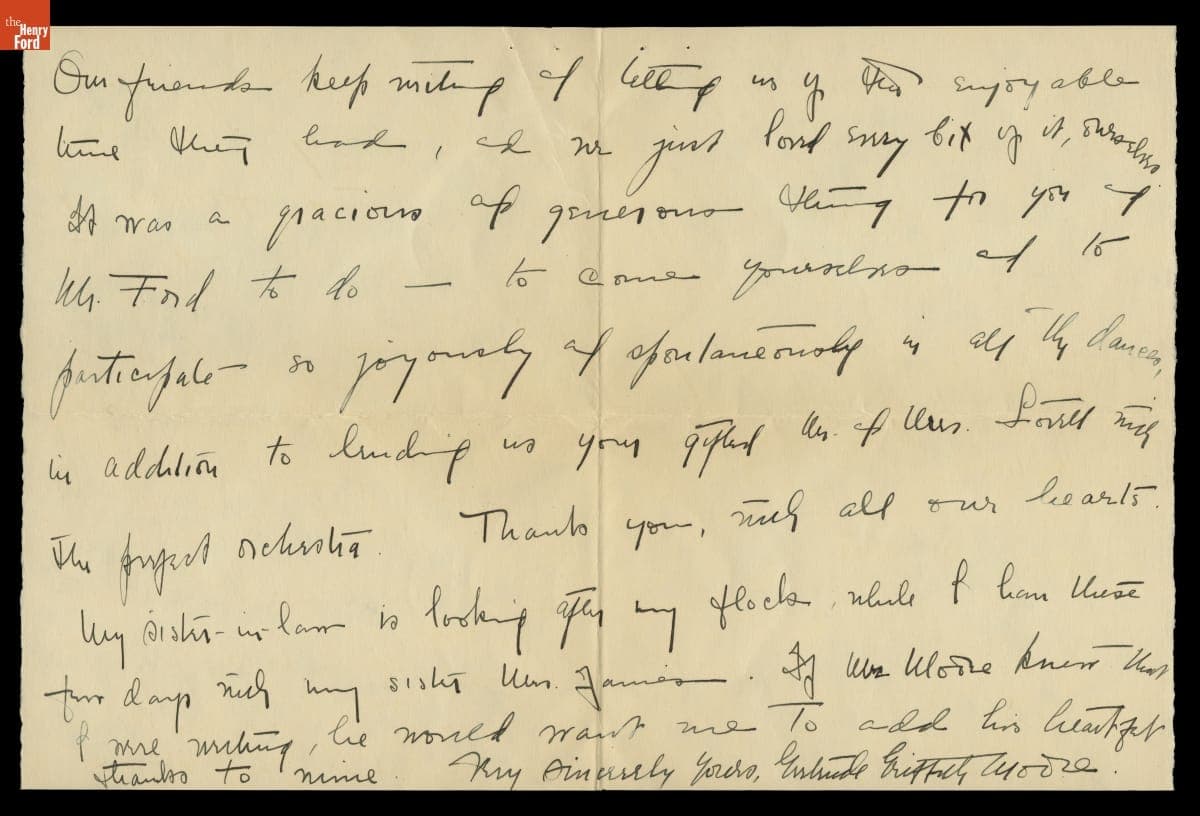 the
Henry
Ford
Our friends keep writing and telling us of the enjoyable
time they had, and we just loved every bit of it, ourselves
It was a gracious and generous thing for you and
Mr. Ford to do — to come yourselves and to
participate so joyously and spontaneously in all the dances,
in addition to lending us your gifted Mr. and Mrs. Lovett with
the perfect orchestra. Thank you, with all our hearts.
My sister-in-law is looking after my flock, while I have these
few days with my sister Mrs. James. If Mr. Moore knew that
I were writing, he would want me to add his heartfelt
thanks to mine. Very sincerely yours, Gertrude Griffith Moore.